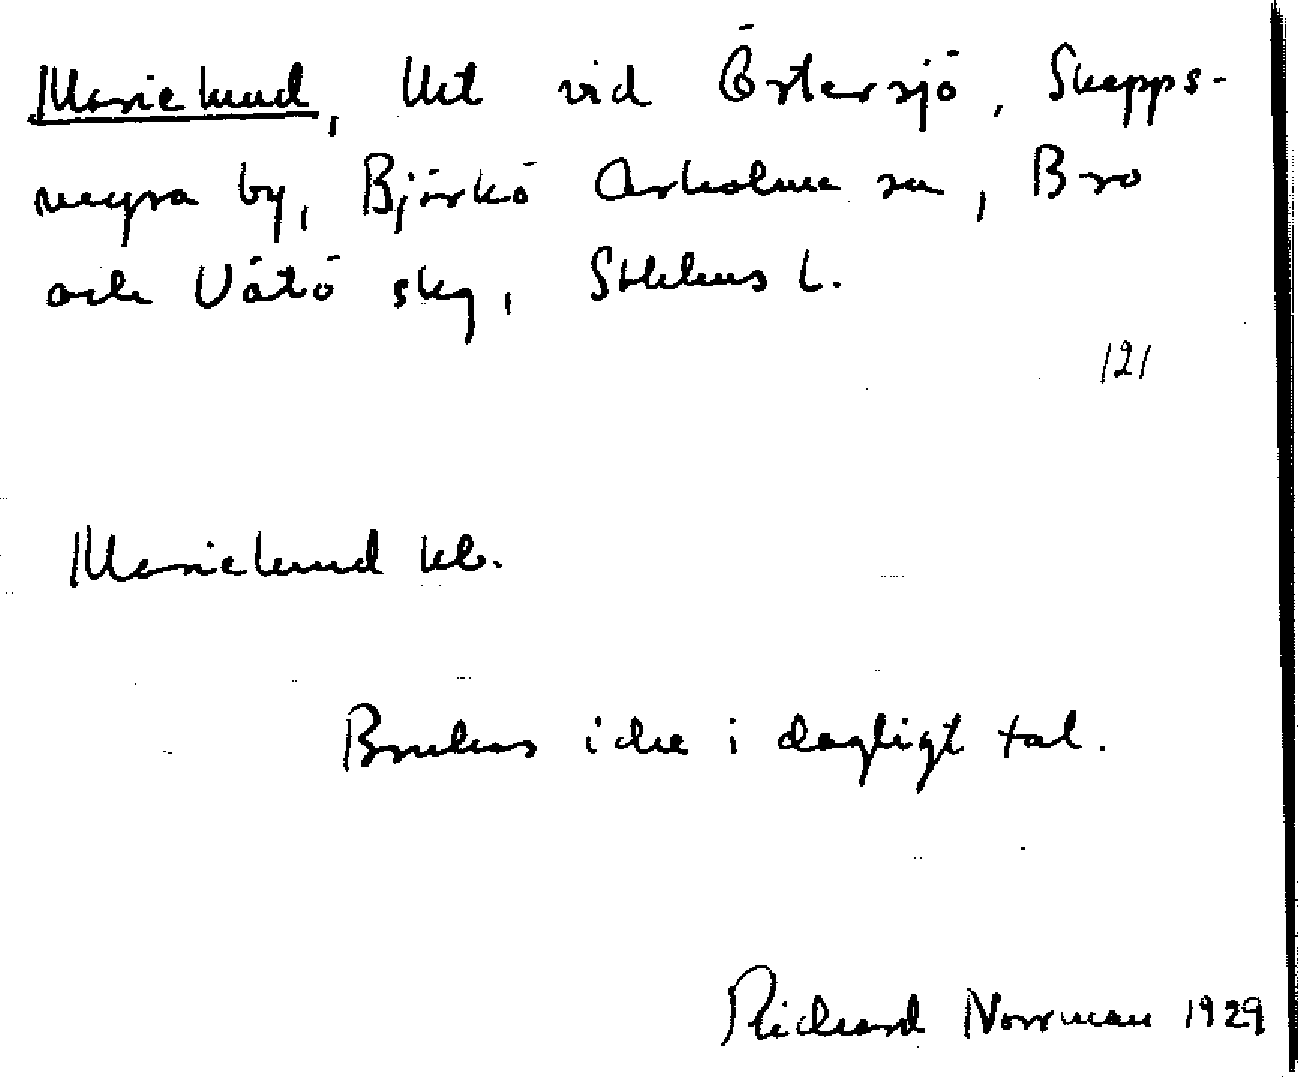 Marielund, Ut vid Östersjö, Skepps-
myra by, Björkö Arholma sn, Bro
och Vätö skg, Sthlms l.
121
Marielund
Brukas icke i dagligt tal.
Richard Norrman 1929